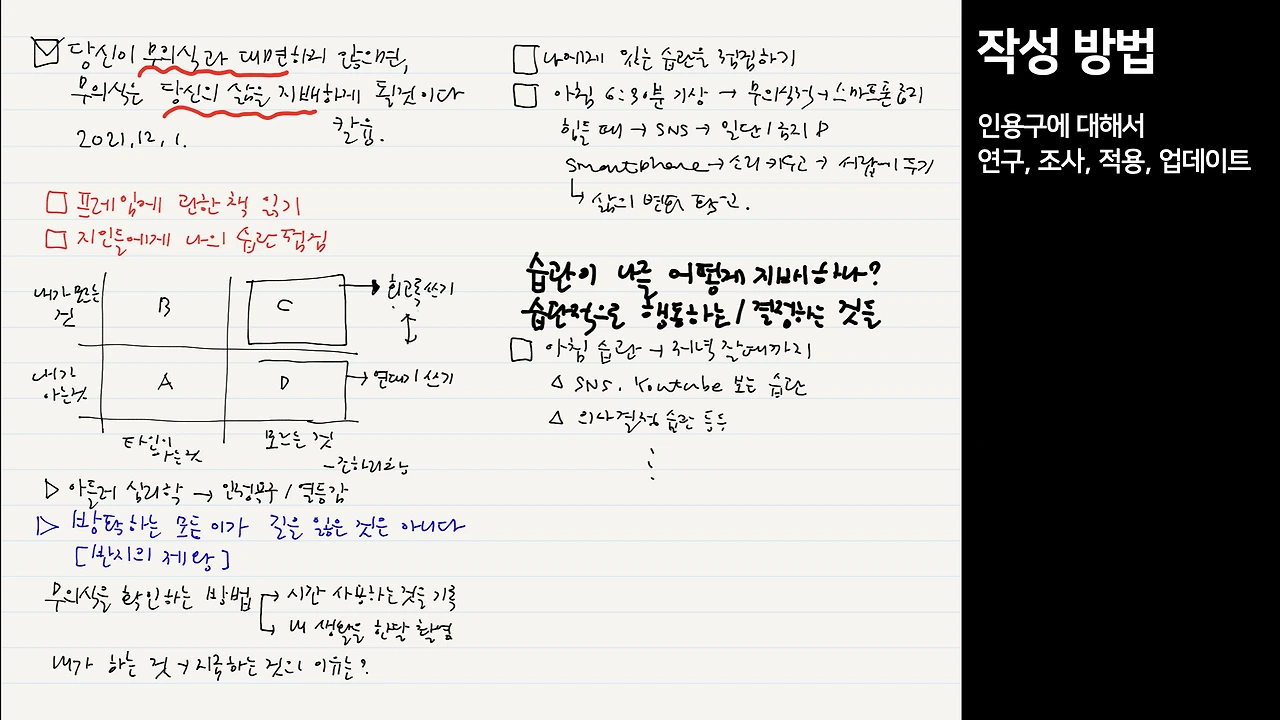 당신이 무의식과 대면하지 않으면,
무의식은 당신의 삶을 지배하게 될것이다
2021.12.1. 칼융.
프레임에 관한 책 읽기
지인들에게 나의 습관 점검
내가 모르는 것
B
C
회고록쓰기
내가 아는것
A
D
연대기 쓰기
타인이 아는것
모르는 것
아들러 심리학 → 인정욕구 / 열등감
방황하는 모든 이가 길을 잃은 것은 아니다
[반지의 제왕]
무의식을 확인하는 방법 → 시간 사용하는것을 기록
→ 내 생활을 한달 촬영
내가 하는 것 → 시작하는 것의 이유는?
나에게 있는 습관을 점검하기
아침 6:30분 기상 → 무의식적 → 스마트폰
힘들 때 → SNS → 일단
Smartphone → 소리 키우고 → 서랍에 두기
→ 삶의 변화
습관이 나를 어떻게 지배하나?
습관적으로 행동하는 / 결정하는 것들
아침 습관 → 저녁 잘때까지
△ SNS, Youtube 보는 습관
△ 의사결정 습관 등등
작성 방법
인용구에 대해서
연구, 조사, 적용, 업데이트